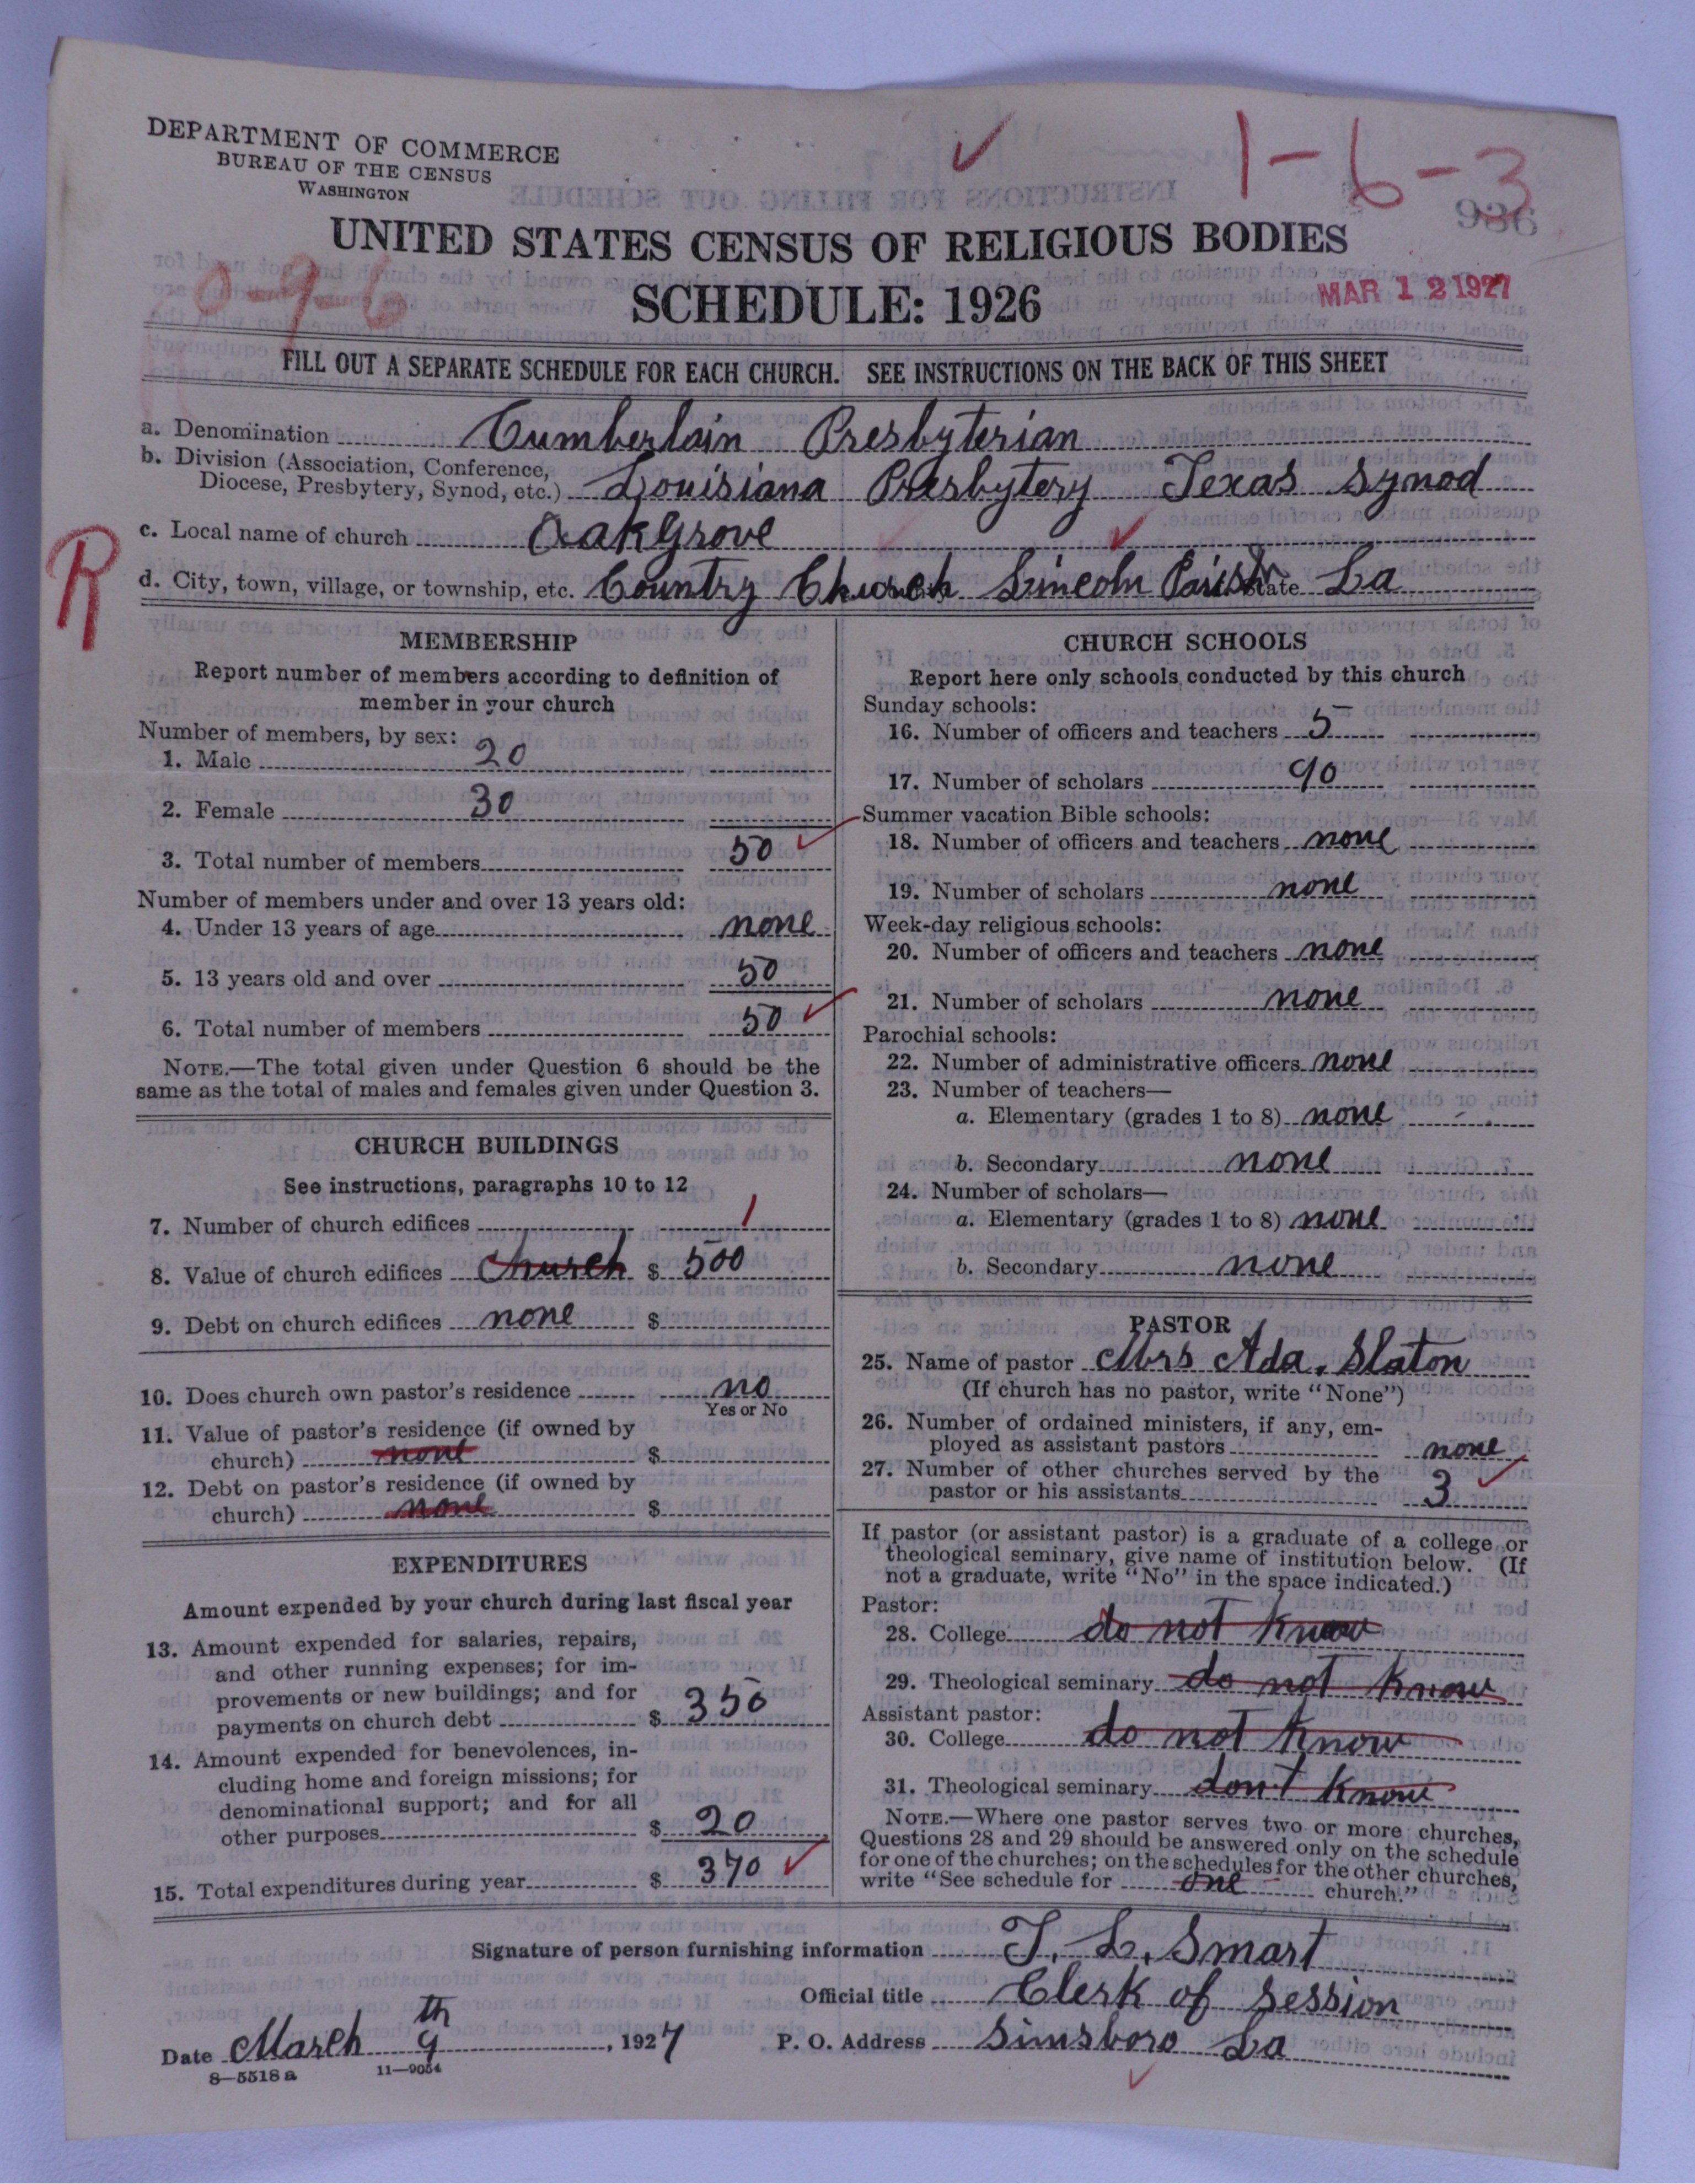 DEPARTMENT OF COMMERCE
BUREAU OF THE CENSUS
WASHINGTON
1-6-3
936
UNITED STATES CENSUS OF RELIGIOUS BODIES
0-9-6
SCHEDULE: 1926
MAR 12 1927
FILL OUT A SEPARATE SCHEDULE FOR EACH CHURCH. SEE INSTRUCTIONS ON THE BACK OF THIS SHEET
a. Denomination Cumberlain Presbyterian
b. Division (Association, Conference,
Diocese, Presbytery, Synod, etc.) Louisiana Presbytery Texas Synod
c. Local name of church Oakgrove
R
d. City, town, village, or township, etc. Country Church Lincoln Parish State La
MEMBERSHIP
Report number of members according to definition of
member in your church
Number of members, by sex:
1. Male 20
2. Female 30
3. Total number of members 50
Number of members under and over 13 years old:
4. Under 13 years of age none
5. 13 years old and over 50
6. Total number of members 50
NOTE.—The total given under Question 6 should be the
same as the total of males and females given under Question 3.
CHURCH BUILDINGS
See instructions, paragraphs 10 to 12
7. Number of church edifices 1
8. Value of church edifices church $ 500
9. Debt on church edifices none $
10. Does church own pastor's residence no
Yes or No
11. Value of pastor's residence (if owned by
church) none $
12. Debt on pastor's residence (if owned by
church) none $
EXPENDITURES
Amount expended by your church during last fiscal year
13. Amount expended for salaries, repairs,
and other running expenses; for im-
provements or new buildings; and for
payments on church debt $ 350
14. Amount expended for benevolences, in-
cluding home and foreign missions; for
denominational support; and for all
other purposes $ 20
15. Total expenditures during year $ 370
CHURCH SCHOOLS
Report here only schools conducted by this church
Sunday schools:
16. Number of officers and teachers 5
17. Number of scholars 90
Summer vacation Bible schools:
18. Number of officers and teachers none
19. Number of scholars none
Week-day religious schools:
20. Number of officers and teachers none
21. Number of scholars none
Parochial schools:
22. Number of administrative officers none
23. Number of teachers—
a. Elementary (grades 1 to 8) none
b. Secondary none
24. Number of scholars—
a. Elementary (grades 1 to 8) none
b. Secondary none
PASTOR
25. Name of pastor Mrs Ada. Slaton
(If church has no pastor, write "None")
26. Number of ordained ministers, if any, em-
ployed as assistant pastors none
27. Number of other churches served by the
pastor or his assistants 3
If pastor (or assistant pastor) is a graduate of a college or
theological seminary, give name of institution below. (If
not a graduate, write "No" in the space indicated.)
Pastor:
28. College do not know
29. Theological seminary do not know
Assistant pastor:
30. College do not know
31. Theological seminary don't know
NOTE.—Where one pastor serves two or more churches,
Questions 28 and 29 should be answered only on the schedule
for one of the churches; on the schedules for the other churches,
write "See schedule for one church."
Signature of person furnishing information T. L. Smart
Official title Clerk of Session
Date March 9th, 1927 P. O. Address Simsboro La
8—5518 a 11—9054